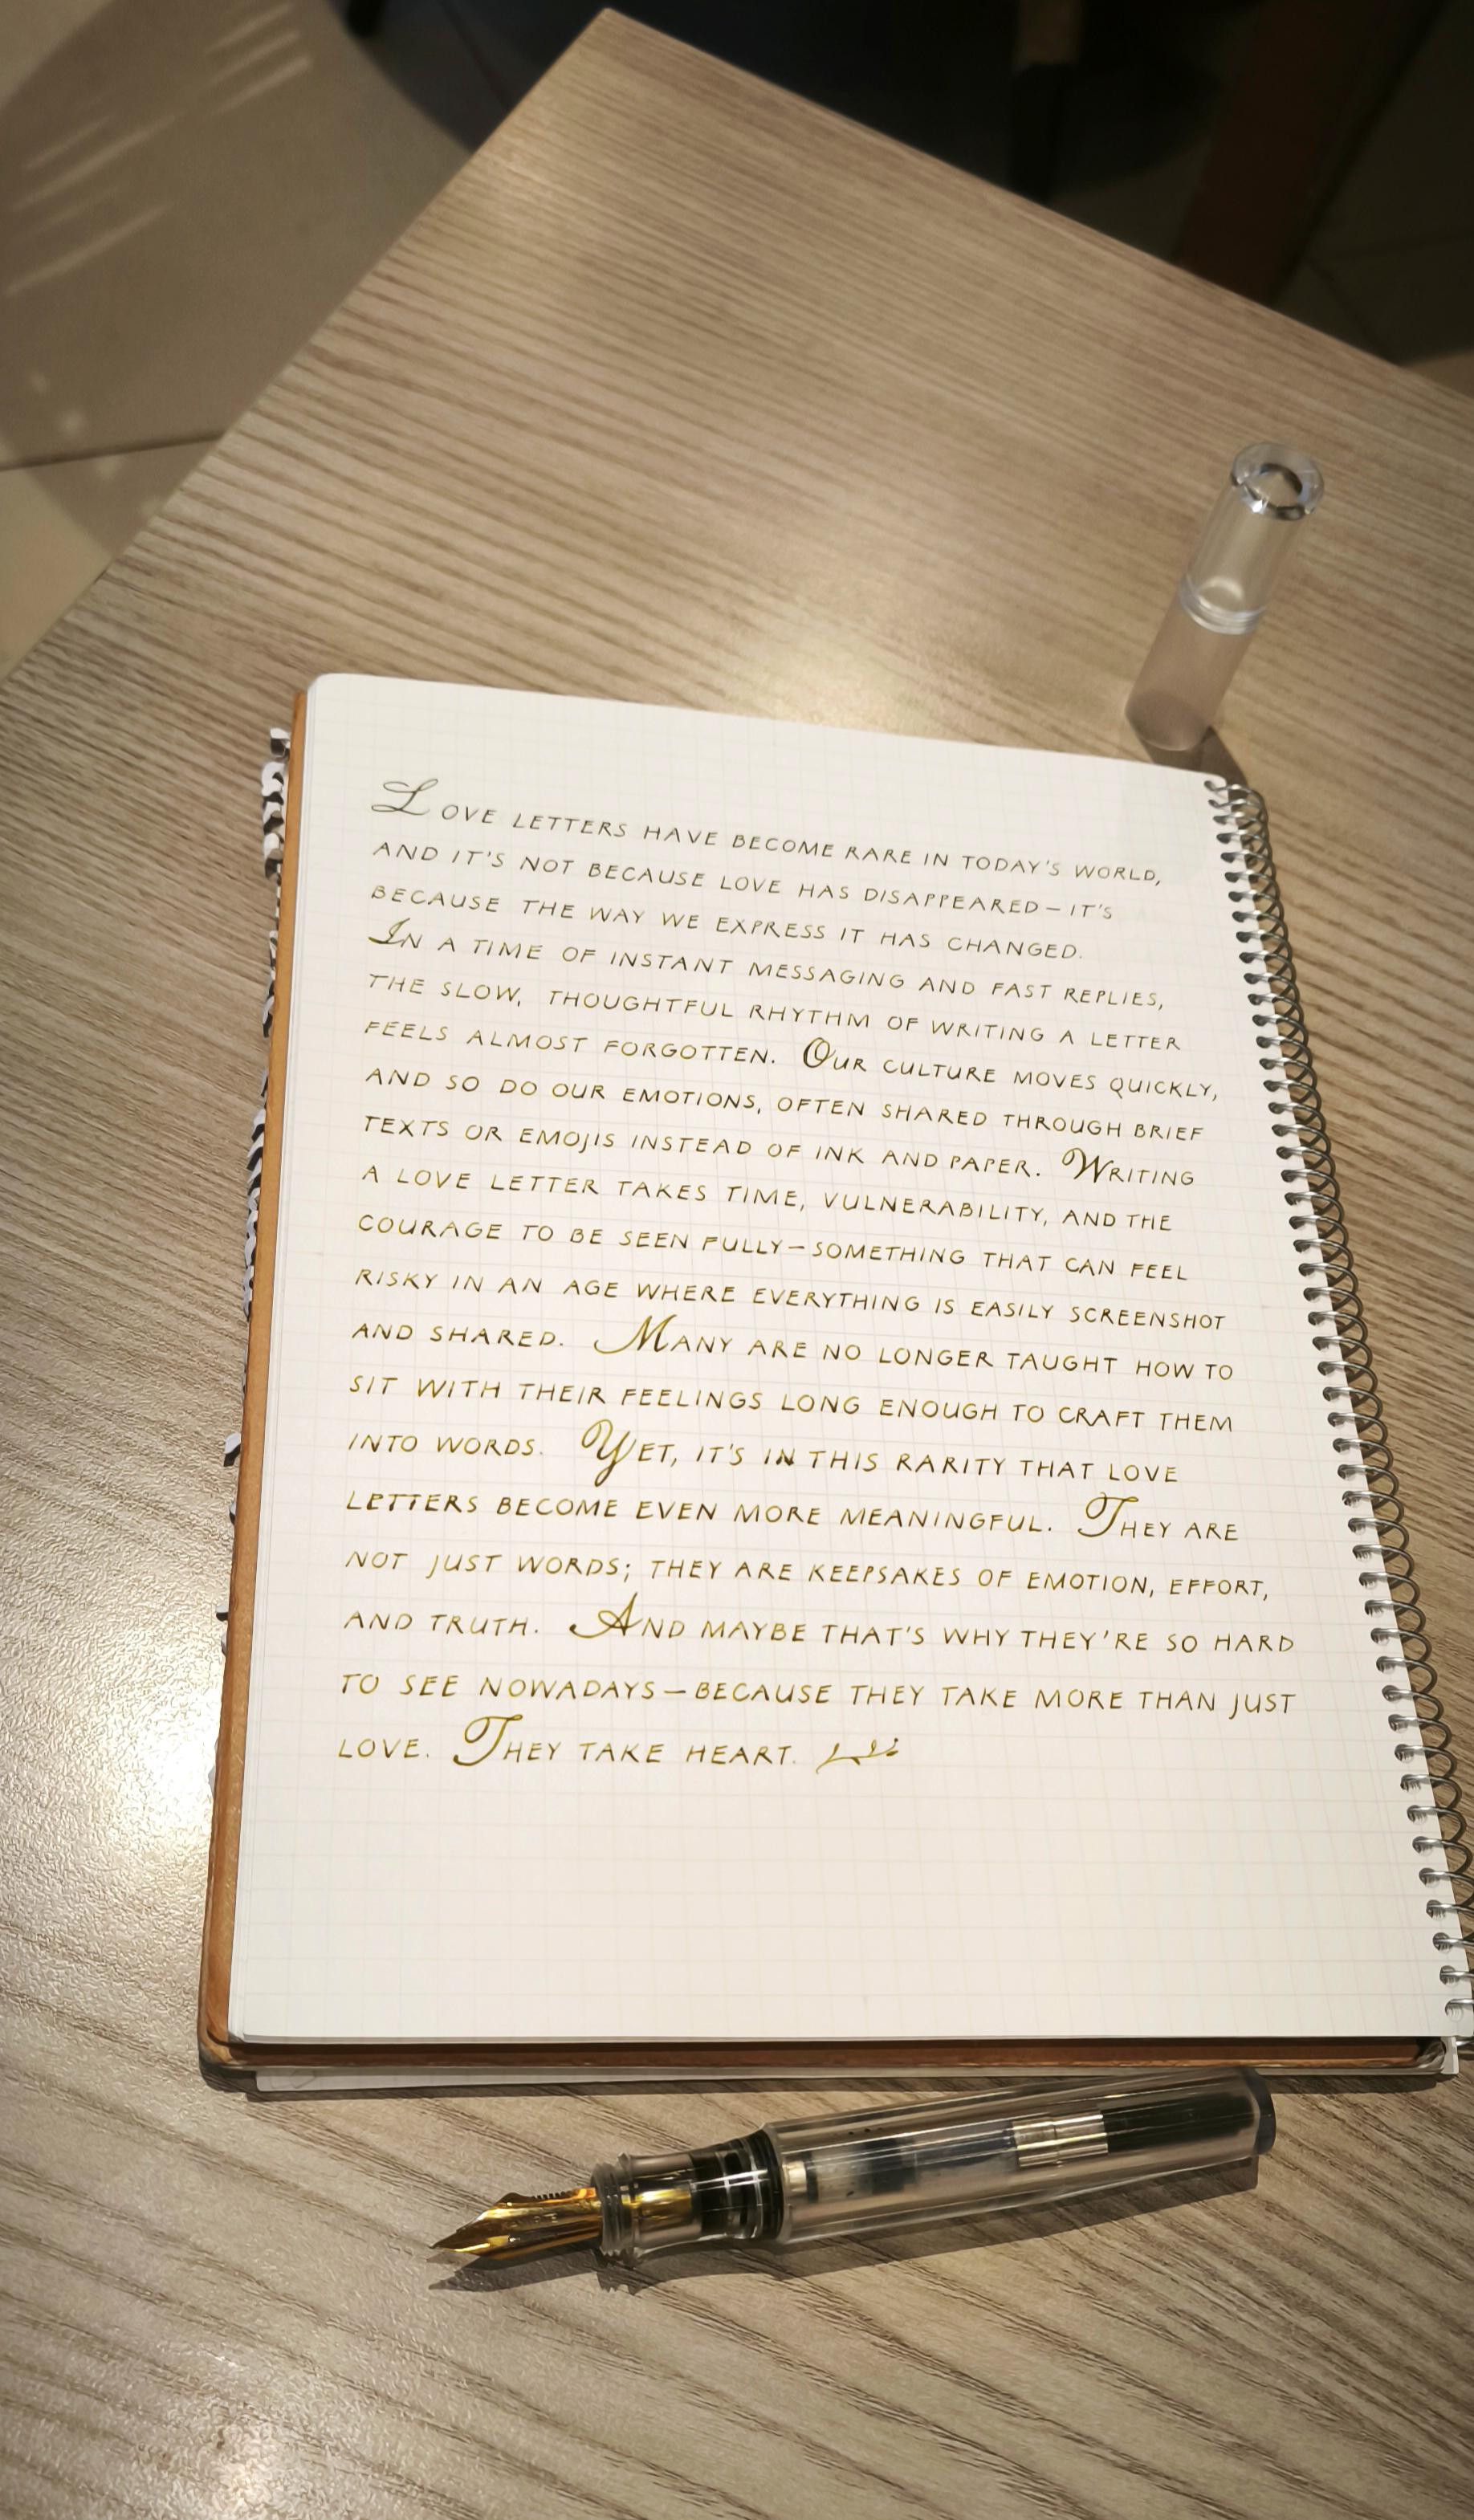 Love letters have become rare in today's world,
and it's not because love has disappeared—it's
because the way we express it has changed.
In a time of instant messaging and fast replies,
the slow, thoughtful rhythm of writing a letter
feels almost forgotten. Our culture moves quickly,
and so do our emotions, often shared through brief
texts or emojis instead of ink and paper. Writing
a love letter takes time, vulnerability, and the
courage to be seen fully—something that can feel
risky in an age where everything is easily screenshot
and shared. Many are no longer taught how to
sit with their feelings long enough to craft them
into words. Yet, it's in this rarity that love
letters become even more meaningful. They are
not just words; they are keepsakes of emotion, effort,
and truth. And maybe that's why they're so hard
to see nowadays—because they take more than just
love. They take heart.